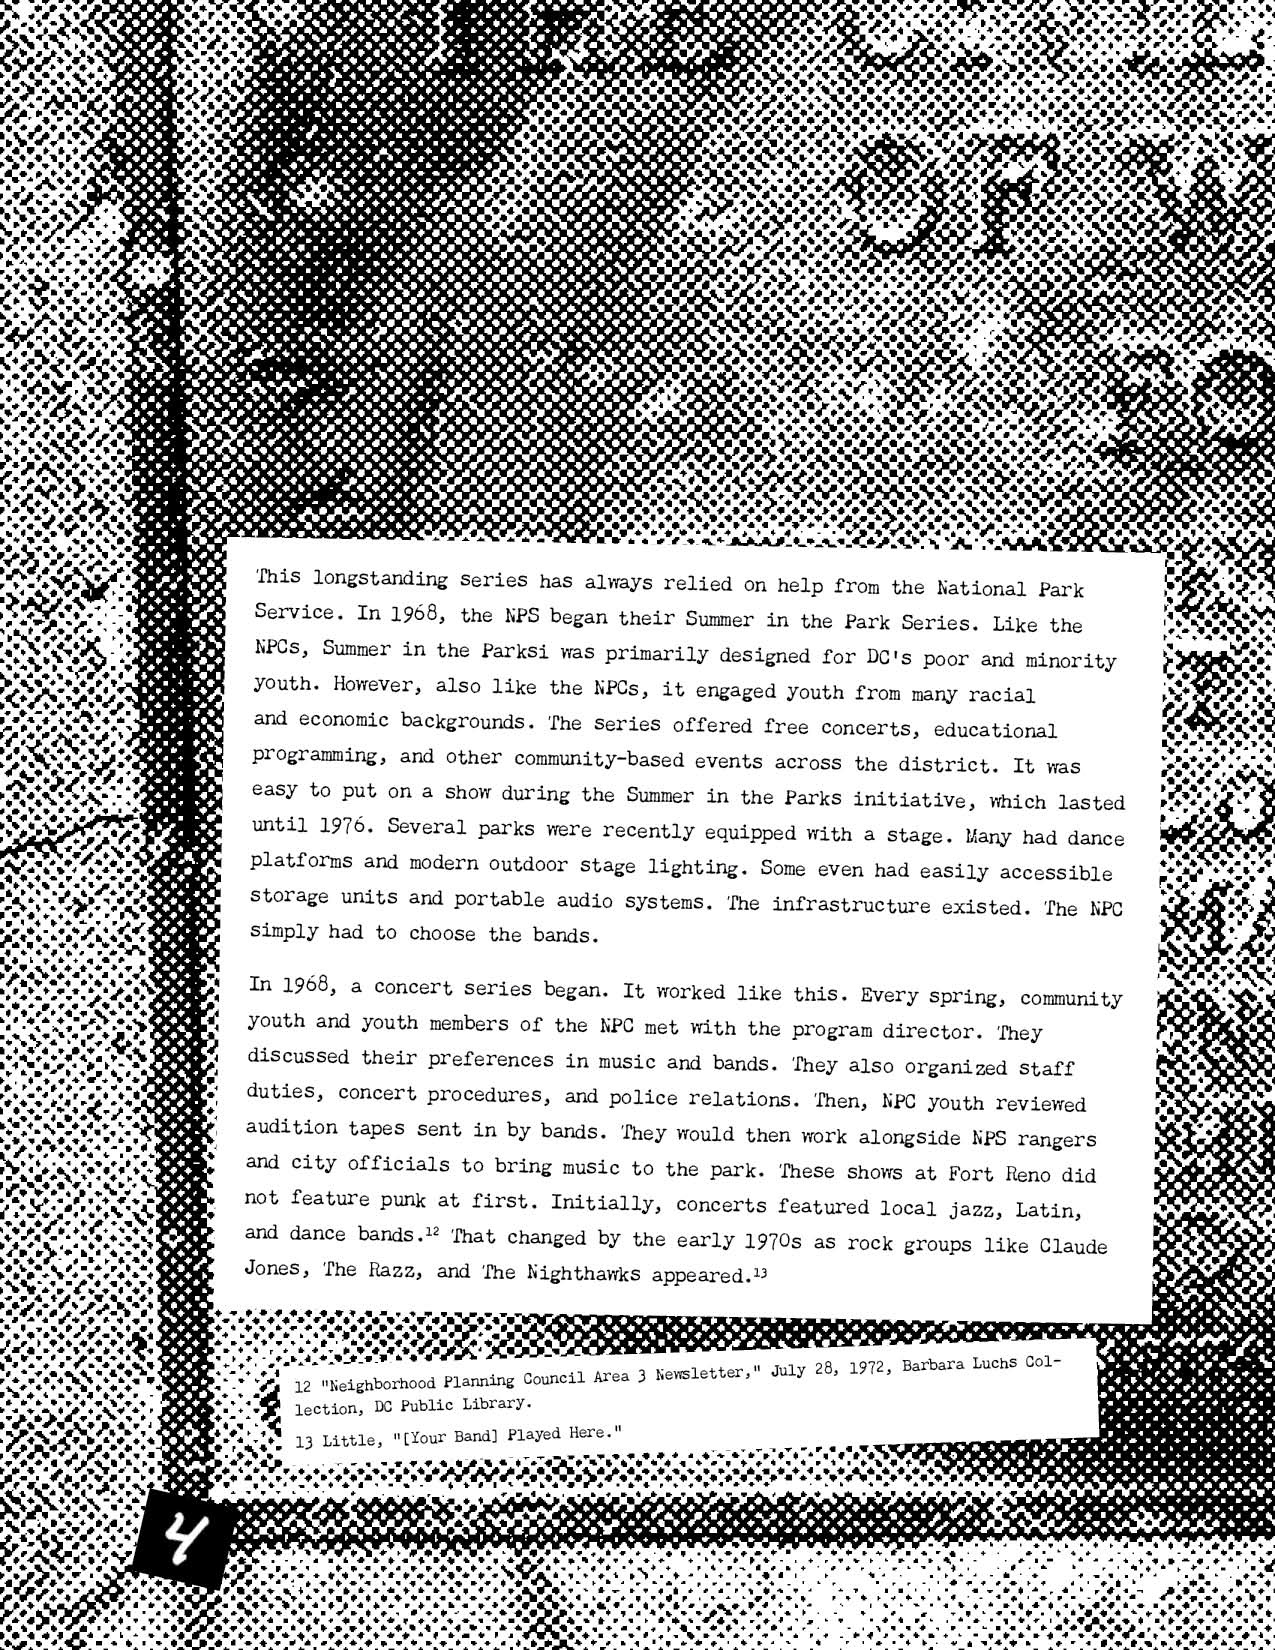 OF W
This longstanding series has always relied on help from the National Park
Service. In 1968, the NPS began their Summer in the Park Series. Like the
NPCs, Summer in the Parksi was primarily designed for DC's poor and minority
youth. However, also like the NPCs, it engaged youth from many racial
and economic backgrounds. The series offered free concerts, educational
programming, and other community-based events across the district. It was
easy to put on a show during the Summer in the Parks initiative, which lasted
until 1976. Several parks were recently equipped with a stage. Many had dance
platforms and modern outdoor stage lighting. Some even had easily accessible
storage units and portable audio systems. The infrastructure existed. The NPC
simply had to choose the bands.
In 1968, a concert series began. It worked like this. Every spring, community
youth and youth members of the NPC met with the program director. They
discussed their preferences in music and bands. They also organized staff
duties, concert procedures, and police relations. Then, NPC youth reviewed
audition tapes sent in by bands. They would then work alongside NPS rangers
and city officials to bring music to the park. These shows at Fort Reno did
not feature punk at first. Initially, concerts featured local jazz, Latin,
and dance bands.12 That changed by the early 1970s as rock groups like Claude
Jones, The Razz, and The Nighthawks appeared.13
12 "Neighborhood Planning Council Area 3 Newsletter," July 28, 1972, Barbara Luchs Col-
lection, DC Public Library.
13 Little, "[Your Band] Played Here."
4